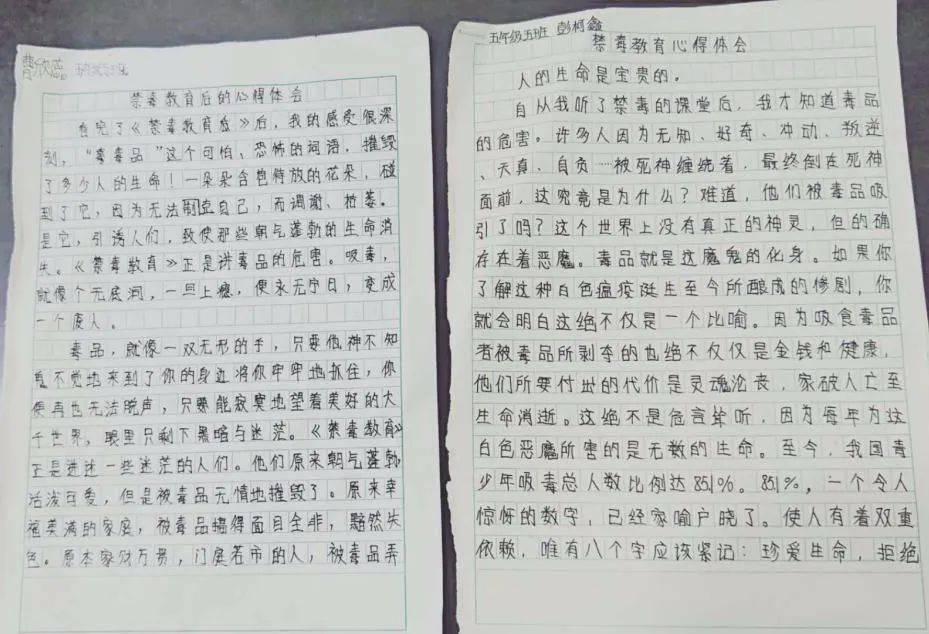 曹欣蕊
禁毒教育后的心得体会
看完了《禁毒教育应》后，我的感受很深
刻，“毒毒品”这个可怕、恐怖的词语，摧毁
了多少人的生命！一朵朵含苞待放的花朵，碰
到了它，因为无法制空自己，而凋谢、枯萎。
是它，引诱人们，致使那些朝气蓬勃的生命消
失。《禁毒教育》正是讲毒品的危害。吸毒，
就像个无底洞，一旦上瘾，便永无宁日，变成
一个废人。
毒品，就像一双无形的手，只要你神不知
鬼不觉地来到了你的身边将你牢牢地抓住，你
便再也无法脱声，只要能寂寞地望着美好的大
千世界，眼里只剩下黑暗与迷茫。《禁毒教育》
正是讲述一些迷茫的人们。他们原来朝气蓬勃
活泼可爱，但是被毒品无情地摧毁了。原来幸
福美满的家庭，被毒品搞得面目全非，黯然失
色。原本家财万贯，门庭若市的人，被毒品弄
五年级五班 彭柯鑫
禁毒教育心得体会
人的生命是宝贵的。
自从我听了禁毒的课堂后，我才知道毒品
的危害。许多人因为无知、好奇、冲动、叛逆
、天真、自负……被死神缠绕着，最终倒在死神
面前，这究竟是为什么？难道，他们被毒品吸
引了吗？这个世界上没有真正的神灵，但的确
存在着恶魔。毒品就是这魔鬼的化身。如果你
了解这种白色瘟疫诞生至今所酿成的惨剧，你
就会明白这绝不仅是一个比喻。因为吸食毒品
者被毒品所剥夺的也绝不仅仅是金钱和健康，
他们所要付出的代价是灵魂沦丧，家破人亡至
生命消逝。这绝不是危言耸听，因为每年为这
白色恶魔所害的是无数的生命。至今，我国青
少年吸毒总人数比例达851%。851%，一个令人
惊怀的数字，已经家喻户晓了。使人有着双重
依赖，唯有八个字应该紧记：珍爱生命，拒绝